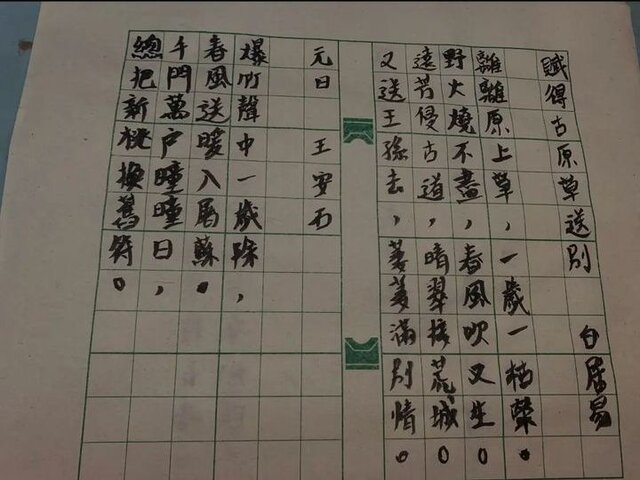 賦得古原草送別 白居易
離離原上草，一歲一枯榮。
野火燒不盡，春風吹又生。
遠芳侵古道，晴翠接荒城。
又送王孫去，萋萋滿別情。
元日 王安石
爆竹聲中一歲除，
春風送暖入屠蘇。
千門萬户曈曈日，
總把新桃換舊符。